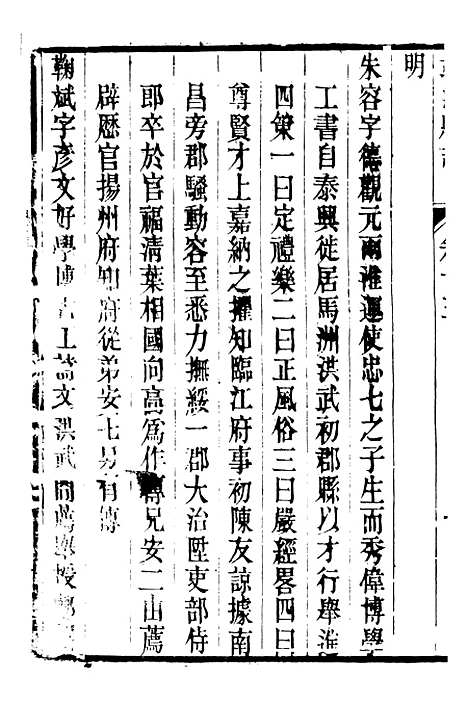 明
朱容字德觀元兩淮運使忠七之子生而秀偉博學
工書自泰興徙居馬洲洪武初郡縣以才行舉進
四策一曰定禮樂二曰正風俗三曰嚴經畧四曰
尊賢才上嘉納之擢知臨江府事初陳友諒據南
昌旁郡騷動容至悉力撫綏一郡大治陞吏部侍
郎卒於官福清葉相國向高爲作傳兄安二山薦
辟歷官揚州府知府從弟安七另有傳
鞠斌字彥文好學博古工詩文洪武間薦舉授